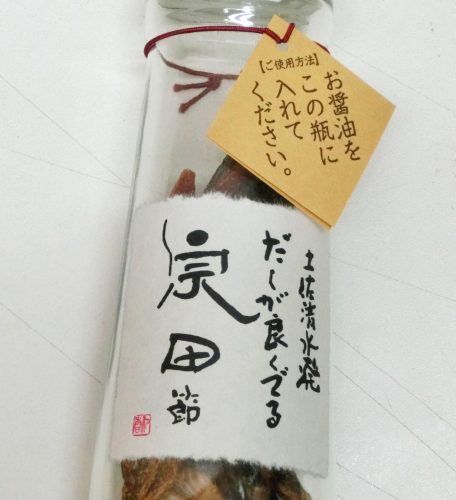 【ご使用方法】
お醤油を
この瓶に
入れて
ください。
土佐清水発
だしが良くでる
宗田節